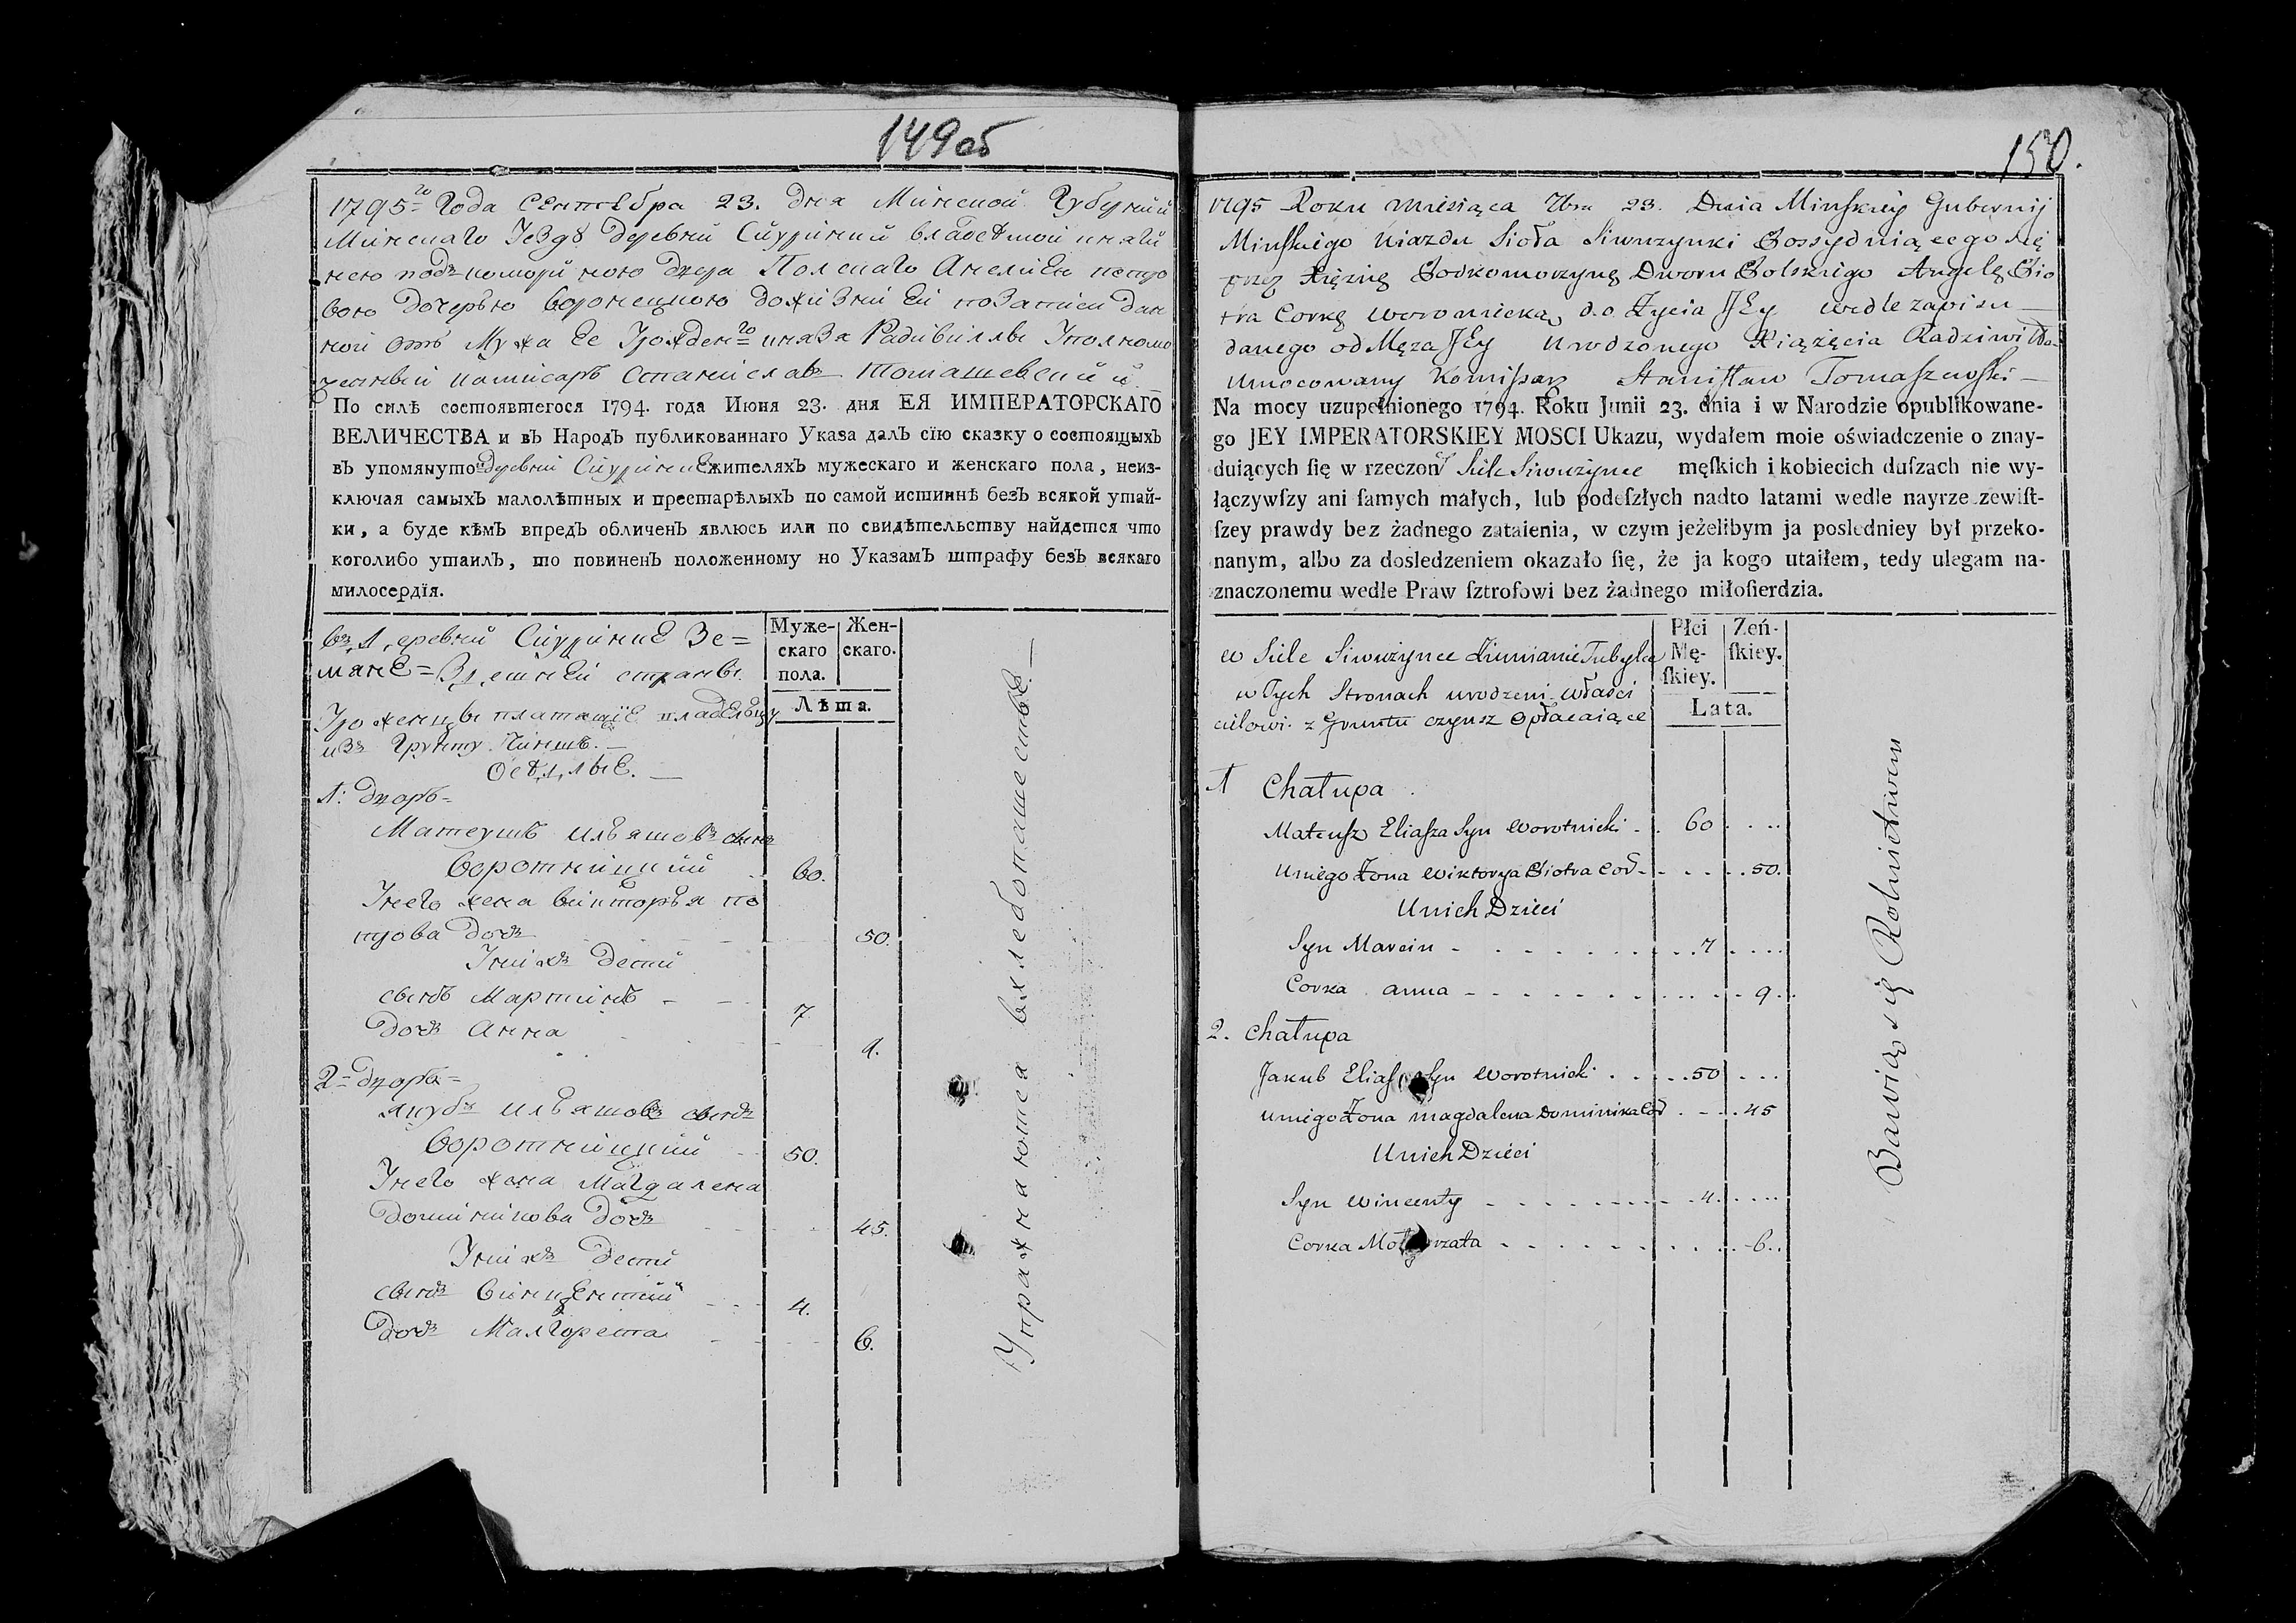 149об
1795го Года Сентебра 23. дня Минской Губернии
Минскаго Уезду деревни Сиурінки владеемой княги
нею подкоморйною двора Полскаго Анелиею петро
вою дочерью воронецкою дожизни Ей по Записи дан
ной отъ Мужа Ее Урожденго князя Радивилла Уполномо
ченный комисаръ Станиславъ Томашевский
По силѣ состоявшегося 1794. года Июня 23. дня ЕЯ ИМПЕРАТОРСКАГО
ВЕЛИЧЕСТВА и въ Народъ публикованнаго Указа далъ сїю сказку о состоящыхъ
въ упомянутой деревни жителяхъ мужескаго и женскаго пола, неиз-
ключая самыхъ малолѣтных и престарѣлыхъ по самой истиннѣ безъ всякой утай-
ки, а буде кѣмъ впредъ обличенъ явлюсь или по свидѣтельству найдется что
коголибо утаилъ, то повиненъ положенному но Указамъ штрафу безъ всякаго
милосердїя.
Муже- Жен-
скаго скаго.
пола.
Лѣта.
въ деревни Сиурінке Зе=
мяне = Здешней страны
Уроженцы платящїе владельцу
изъ Грунту Чиншъ. —
Оседлые. —
1: дворъ =
Матеушъ Ильяшовъ сынъ
Воротницкий 60.
Унего жена викторья пе
трова дочь 50.
Унихъ дети
сынъ Мартинъ - - 7.
дочь Анна 9.
2= дворъ =
якубъ Ильяшовъ сынъ
Воротницкий 50.
Унего жена Магдалена
доминикова дочь 45.
Унихъ дети
сынъ Винцентий 4.
дочь Малгорета 6.
Упражнаются вхлебопашестве. —
150.
1795 Roku Miesiąca 7bra 23. Dnia Minskiey Gubernij
Minskiego Uiazdu Sioła Siwurzynki Possyduiącego się
przez Xiężnę Podkomorzynę Dworu Polskiego Angelę Pio
tra Corkę Woronicką do Życia JEy wedle zapisu —
danego od Męża JEy Urodzonego Xiążęcia Radziwiłła-
Umocowany Komisarz Stanisław Tomaszewski —
Na mocy uzupełnionego 1794. Roku Junii 23. dnia i w Narodzie opublikowane-
go JEY IMPERATORSKIEY MOSCI Ukazu, wydałem moie oświadczenie o znay-
duiących ſię w rzeczonſ Siele Siwurzynce męſkich i kobiecich duſzach nie wy-
łączywſzy ani ſamych małych, lub podeſzłych nadto latami wedle nayrze zewiſt-
ſzey prawdy bez żadnego zataienia, w czym jeżelibym ja posledniey był przeko-
nanym, albo za dosledzeniem okazało ſię, że ja kogo utaiłem, tedy ulegam na-
znaczonemu wedle Praw ſztrofowi bez żadnego miłoſierdzia.
Płci Zeń-
Mę- ſkiey.
ſkiey.
Lata.
w Siele Siwurzynce Ziemianie Tubylce
w Tych Stronach urodzeni właści
cielowi z Gruntu czynsz opłacaiące
1 Chałupa
Mateusz Eliasza Syn Worotnicki . . 60 . . . .
Uniego Żona Wiktorya Piotra Cor - . . . . . 50.
Unich Dzieci
Syn Marcin - . . . . . . . . 7 . . . .
Corka anna - - . . . . . . . . - 9 . . .
2. Chałupa
Jakub Eliasza Syn Worotnicki . . . . 50 . . .
Uniego Żona Magdalena Dominika Cor . - . . 45
Unich Dzieci
Syn Wincenty - - . . . . . . - . 4. . . . .
Corka Małgorzata - . . . . . . . . . . . -6. .
Bawiąc się Rolnictwem